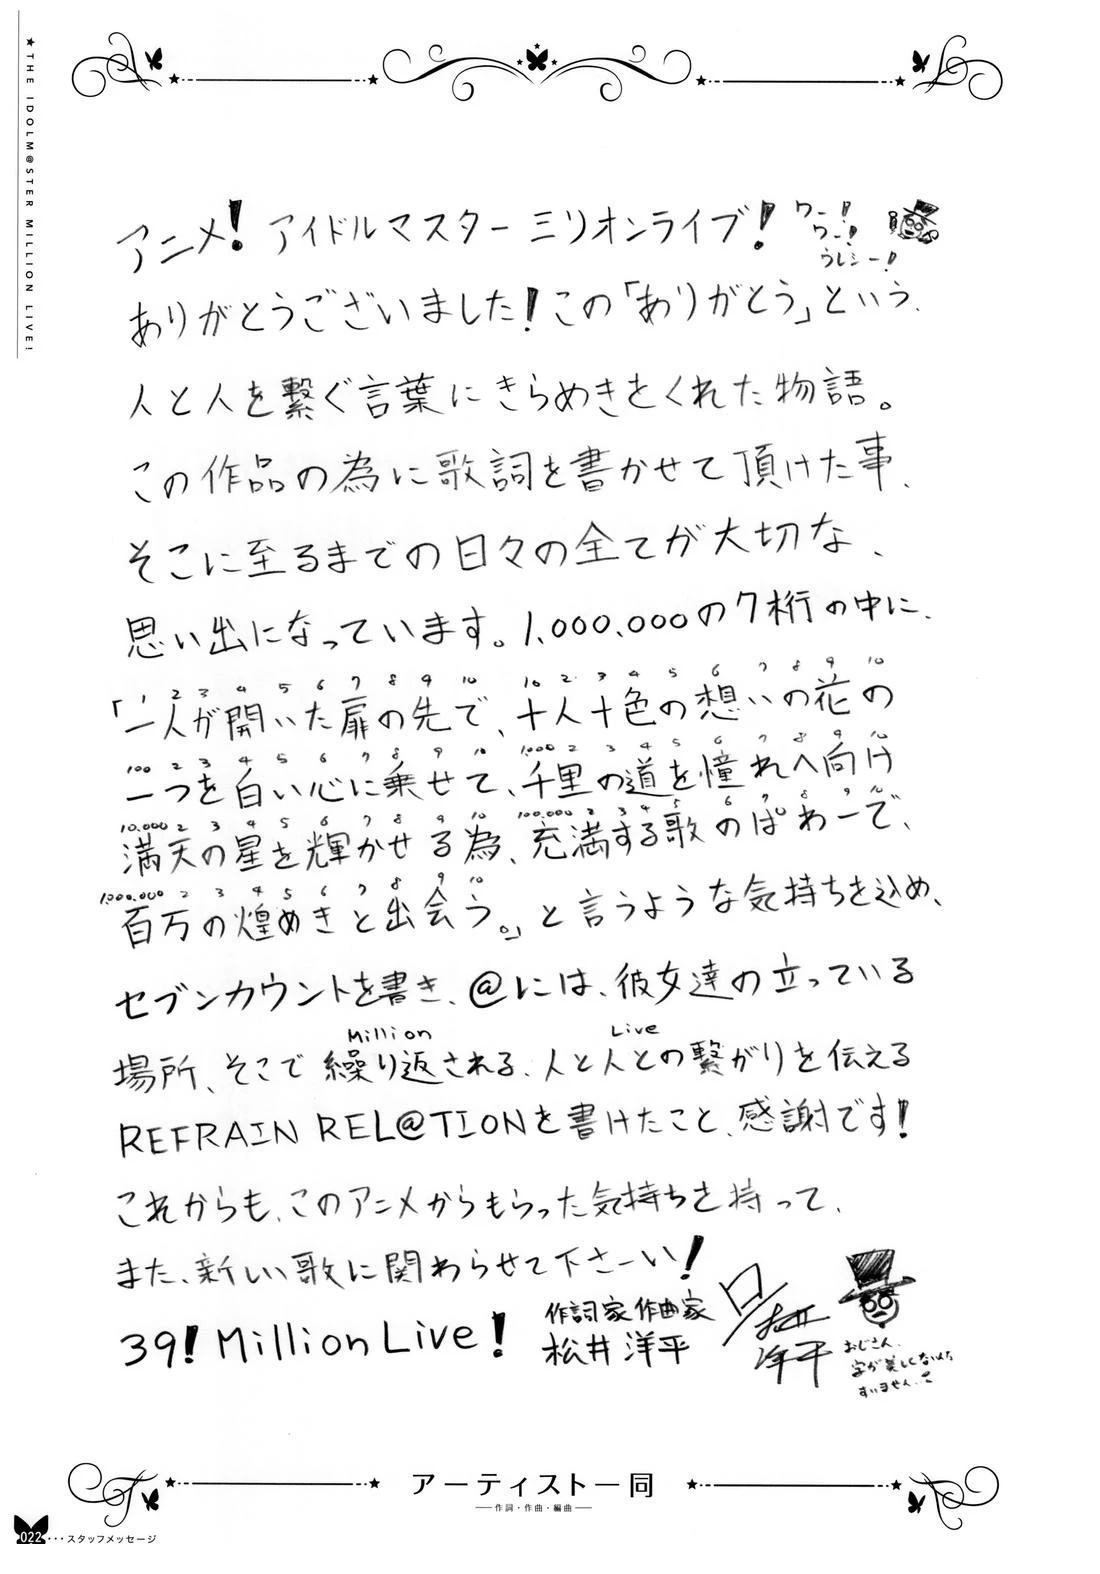 ★THE IDOLM@STER MILLION LIVE!
アニメ! アイドルマスター ミリオンライブ!
ワー!
ワー!
ウレシー!
ありがとうございました!この「ありがとう」という、
人と人を繋ぐ言葉にきらめきをくれた物語。
この作品の為に歌詞を書かせて頂けた事、
そこに至るまでの日々の全てが大切な、
思い出になっています。1,000,000の7桁の中に、
1 2 3 4 5 6 7 8 9 10 10 2 3 4 5 6 7 8 9 10
「一人が開いた扉の先で、十人十色の想いの花の
100 2 3 4 5 6 7 8 9 10 1,000 2 3 4 5 6 7 8 9 10
一つを白い心に乗せて、千里の道を憧れへ向け
10,000 2 3 4 5 6 7 8 9 10 100,000 2 3 4 5 6 7 8 9 10
満天の星を輝かせる為、充満する歌のぱわーで、
1,000,000 2 3 4 5 6 7 8 9 10
百万の煌めきと出会う。」と言うような気持ちを込め、
セブンカウントを書き、@には、彼女達の立っている
Million Live
場所、そこで繰り返される、人と人との繋がりを伝える
REFRAIN REL@TIONを書けたこと、感謝です!
これからも、このアニメからもらった気持ちを持って、
また、新しい歌に関わらせて下さーい!
39! Million Live!
作詞家 作曲家
松井 洋平
松井
洋平
おじさん、
字が美しくないんだ
すいません..
アーティスト一同
作詞・作曲・編曲
022・・・スタッフメッセージ